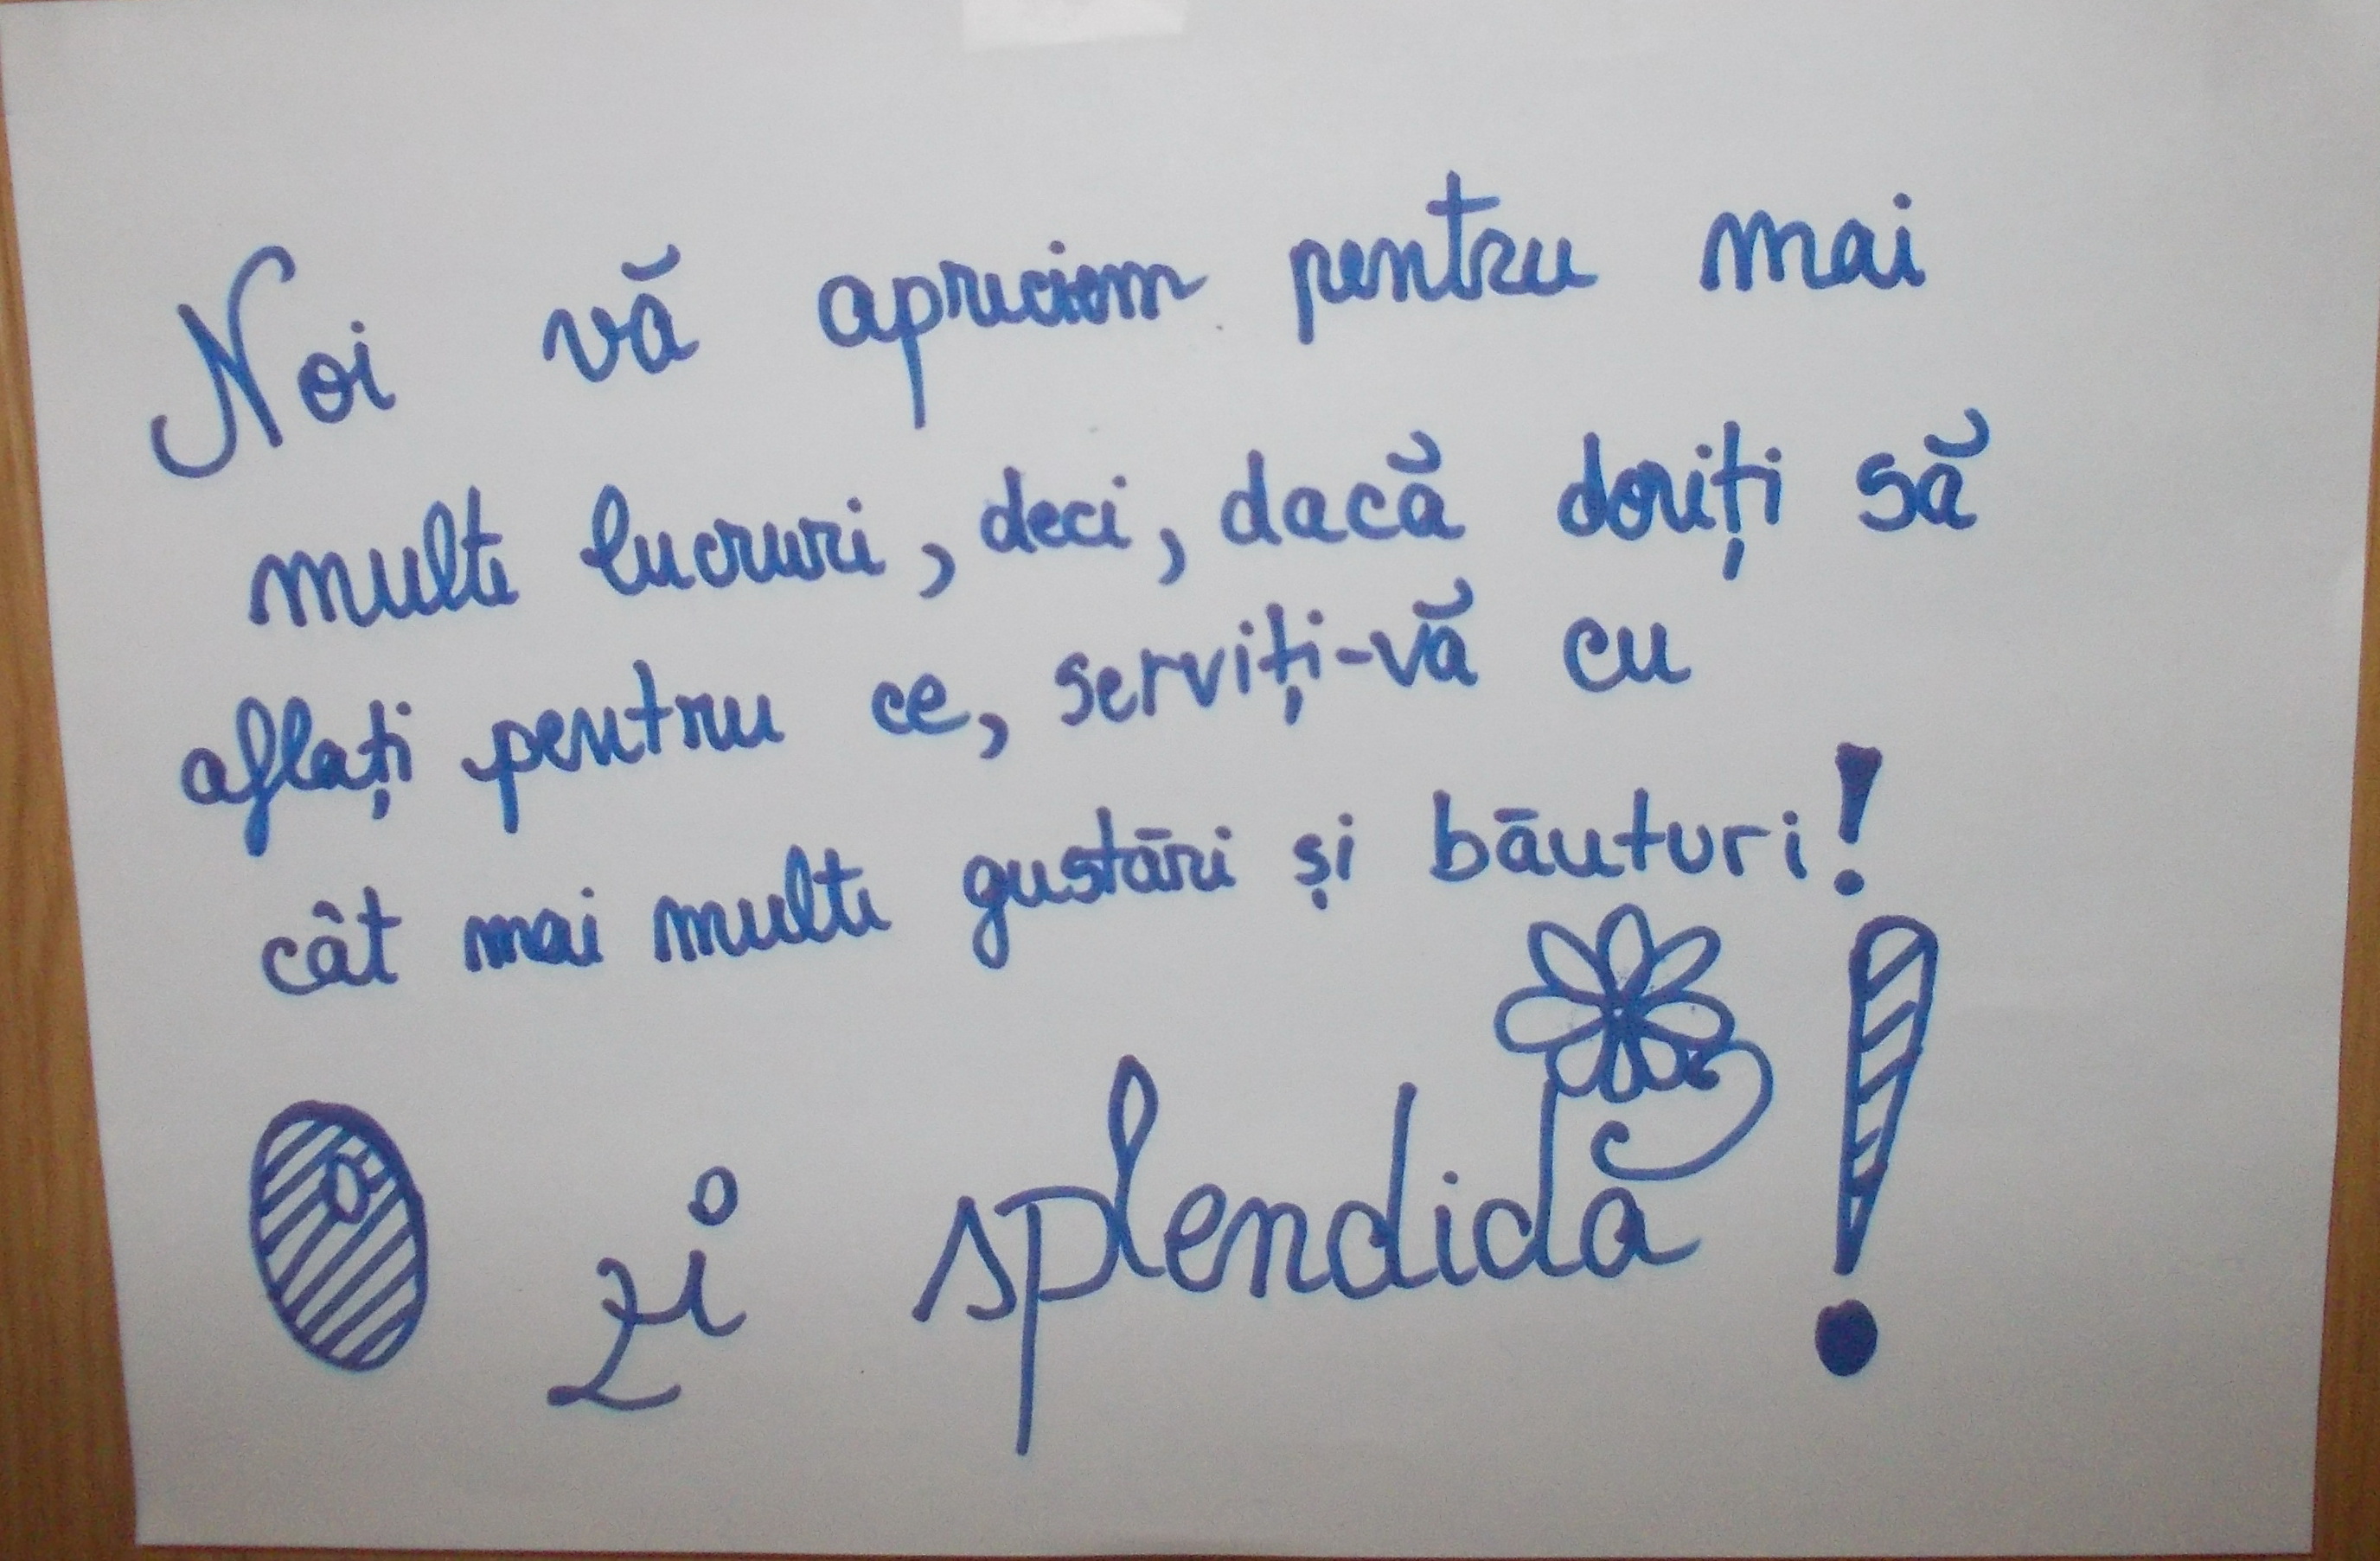 Noi vă apreciem pentru mai
multe lucruri, deci, dacă doriți să
aflați pentru ce, serviți-vă cu
cât mai multe gustāri și bāuturi!
O zi splendidă!